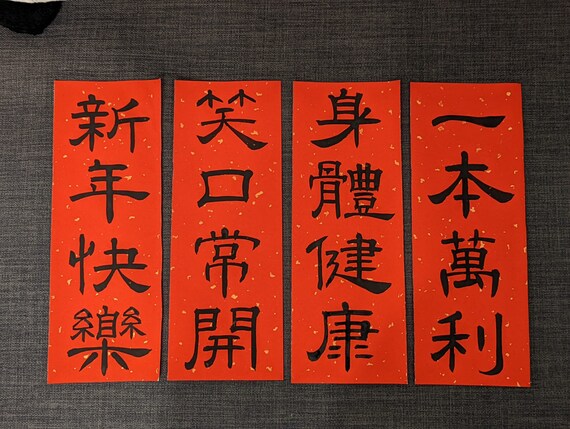 新年快樂
笑口常開
身體健康
一本萬利